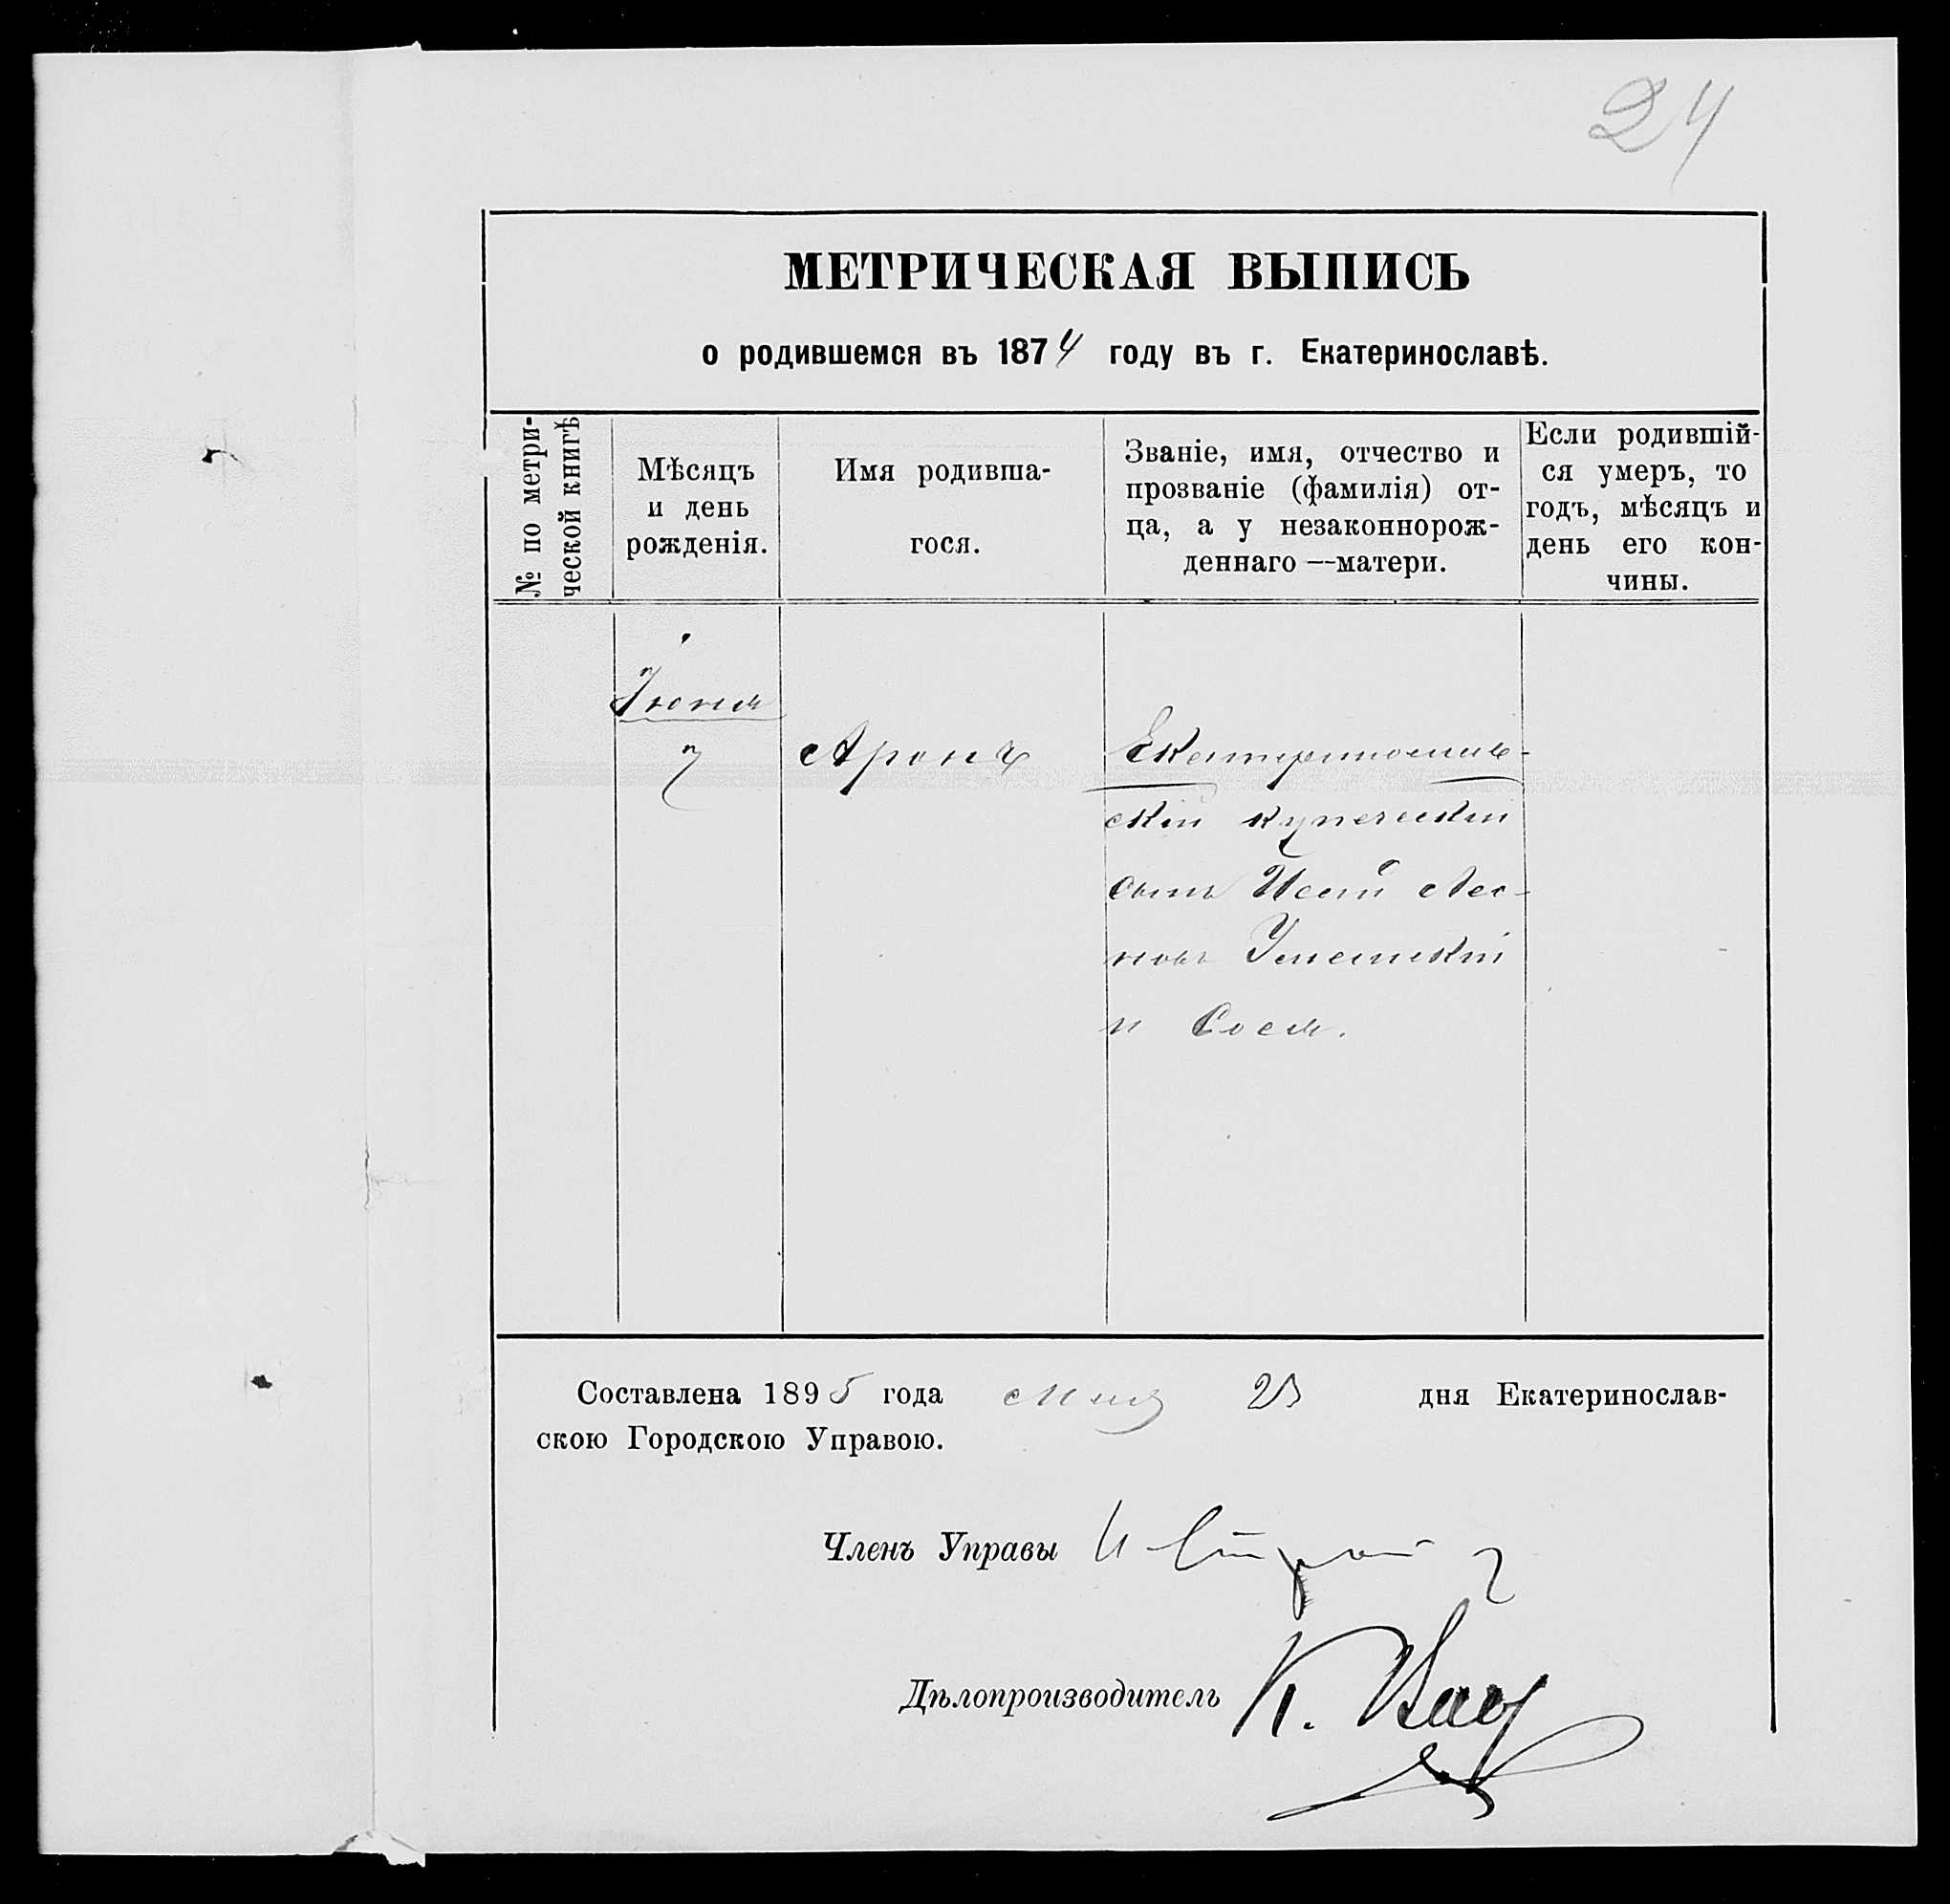 24
МЕТРИЧЕСКАЯ ВЫПИСЬ
о родившемся въ 1874 году въ г. Екатеринославѣ.
№ по метри-
ческой книгѣ
Мѣсяцъ
и день
рожденія.
Имя родивша-
гося.
Званіе, имя, отчество и
прозваніе (фамилія) от-
ца, а у незаконнорож-
деннаго —матери.
Если родившій-
ся умеръ, то
годъ, мѣсяцъ и
день его кон-
чины.
Іюня
7
Аронъ
Екатеринослав-
скій купеческій
сынъ
и
Составлена 1895 года дня Екатеринослав-
скою Городскою Управою.
Членъ Управы
Дѣлопроизводитель К.